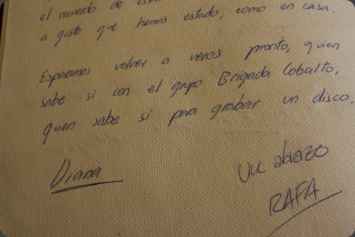 el mundo de
a gusto que hemos estado, como en casa.
Esperamos volver a veros pronto, quien
sabe si con el grupo Brigada Cobalto,
quien sabe si para grabar un disco.
Un abrazo
Diana
RAFA